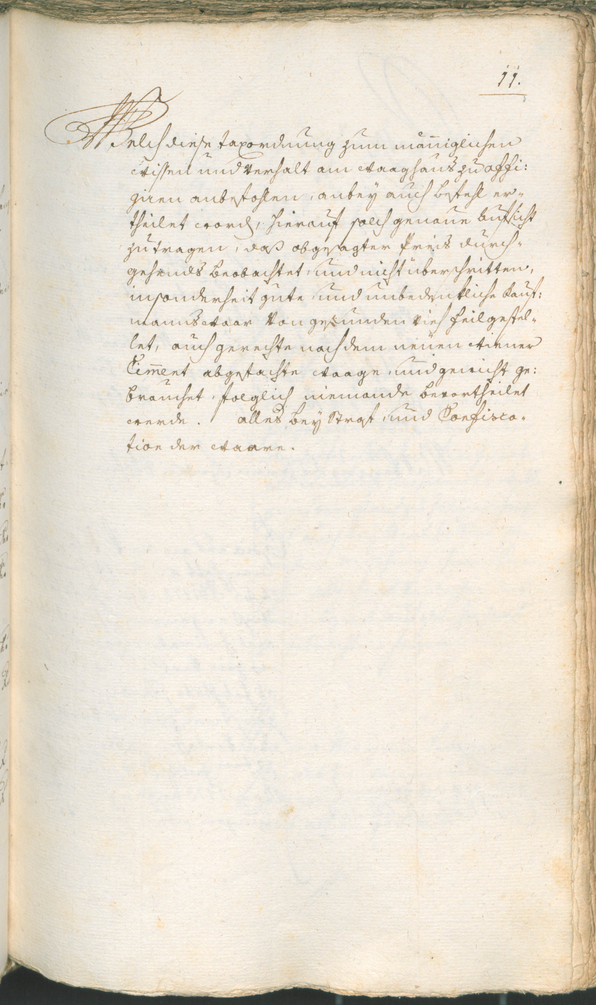 11.
Welch diese taxordnung zum männiglichen
wissen und verhalt am waaghaus zu affi:
giren anbefohlen, anbey auch befehl er-
theilet word, hierauf solch genaue aufsicht
zutragen, daß obgesagter Preis durch-
gehends beobachtet, und nicht überschritten,
insonderheit gute, und unbedenkliche kauf:
manns waar von gesunden vieh feilgestel-
let, auch gerechte nach dem neuen wiener
Ciment abgefachte waage, und gewicht ge:
brauchet, folglich niemands bevortheilet
werde. alles bey Straf, und Confisca-
tion der waare.